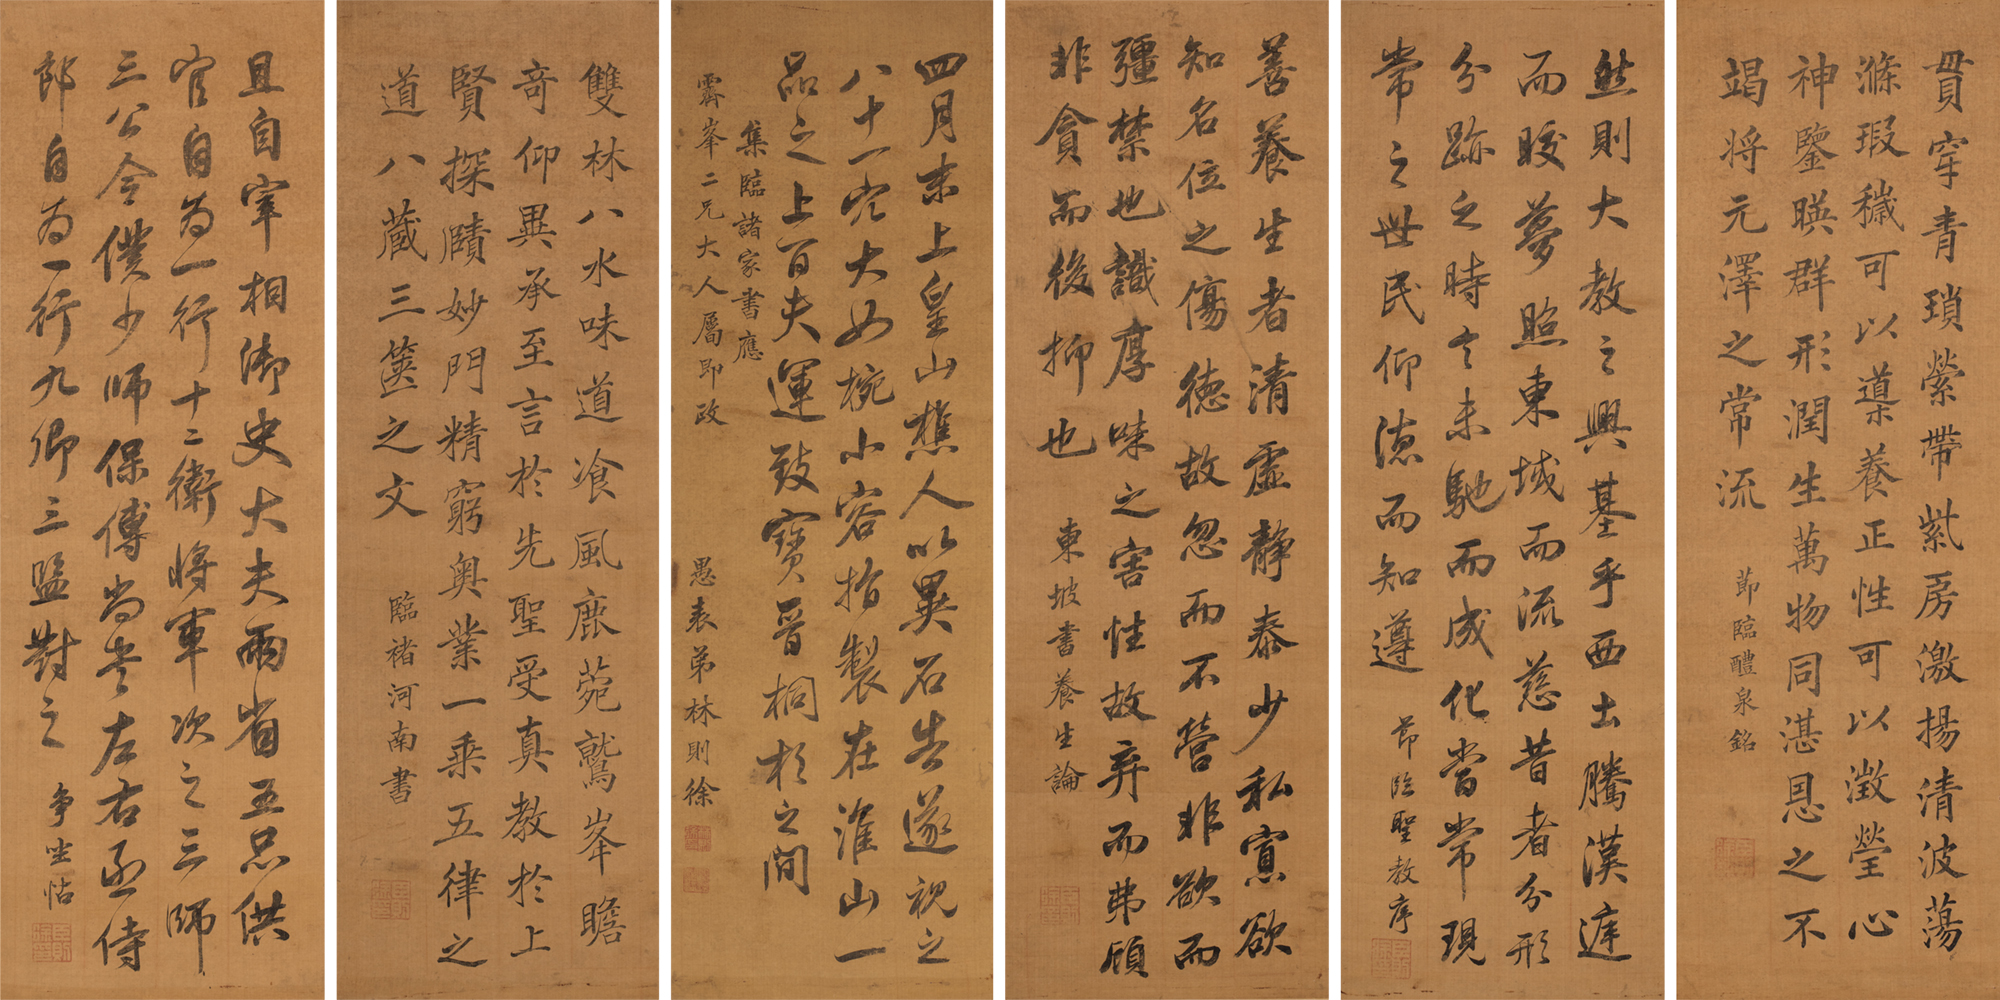 貫穿青瑣縈帶紫房激揚清波蕩
滌瑕穢可以導養正性可以澂瑩心
神鑒暎群形潤生萬物同湛恩之不
竭将元澤之常流
節臨醴泉銘
然則大教之興基乎西土騰漢庭
而皎夢照東域而流慈昔者分形
分跡之時言未馳而成化當常現
常之世民仰德而知遵
節臨聖教序
善養生者清虛靜泰少私寡欲
知名位之傷德故忽而不營非欲而
彊禁也識厚味之害性故弃而弗顧
非貪而後抑也
東坡書養生論
四月末上皇山樵人以異石告遂視之
八十一穴大如椀小容指製在淮山一
品之上百夫運致寶晋桐杉之間
集臨諸家書應
霽峯二兄大人屬即政
愚表弟林則徐
雙林八水味道飡風鹿菀鷲峯瞻
奇仰異承至言於先聖受真教於上
賢探賾妙門精窮奥業一乘五律之
道八藏三篋之文
臨褚河南書
且自宰相御史大夫兩省五品供
官自為一行十二衛将軍次之三師
三公令僕少師保傅尚書左右丞侍
郎自為一行九卿三監對之
争坐帖